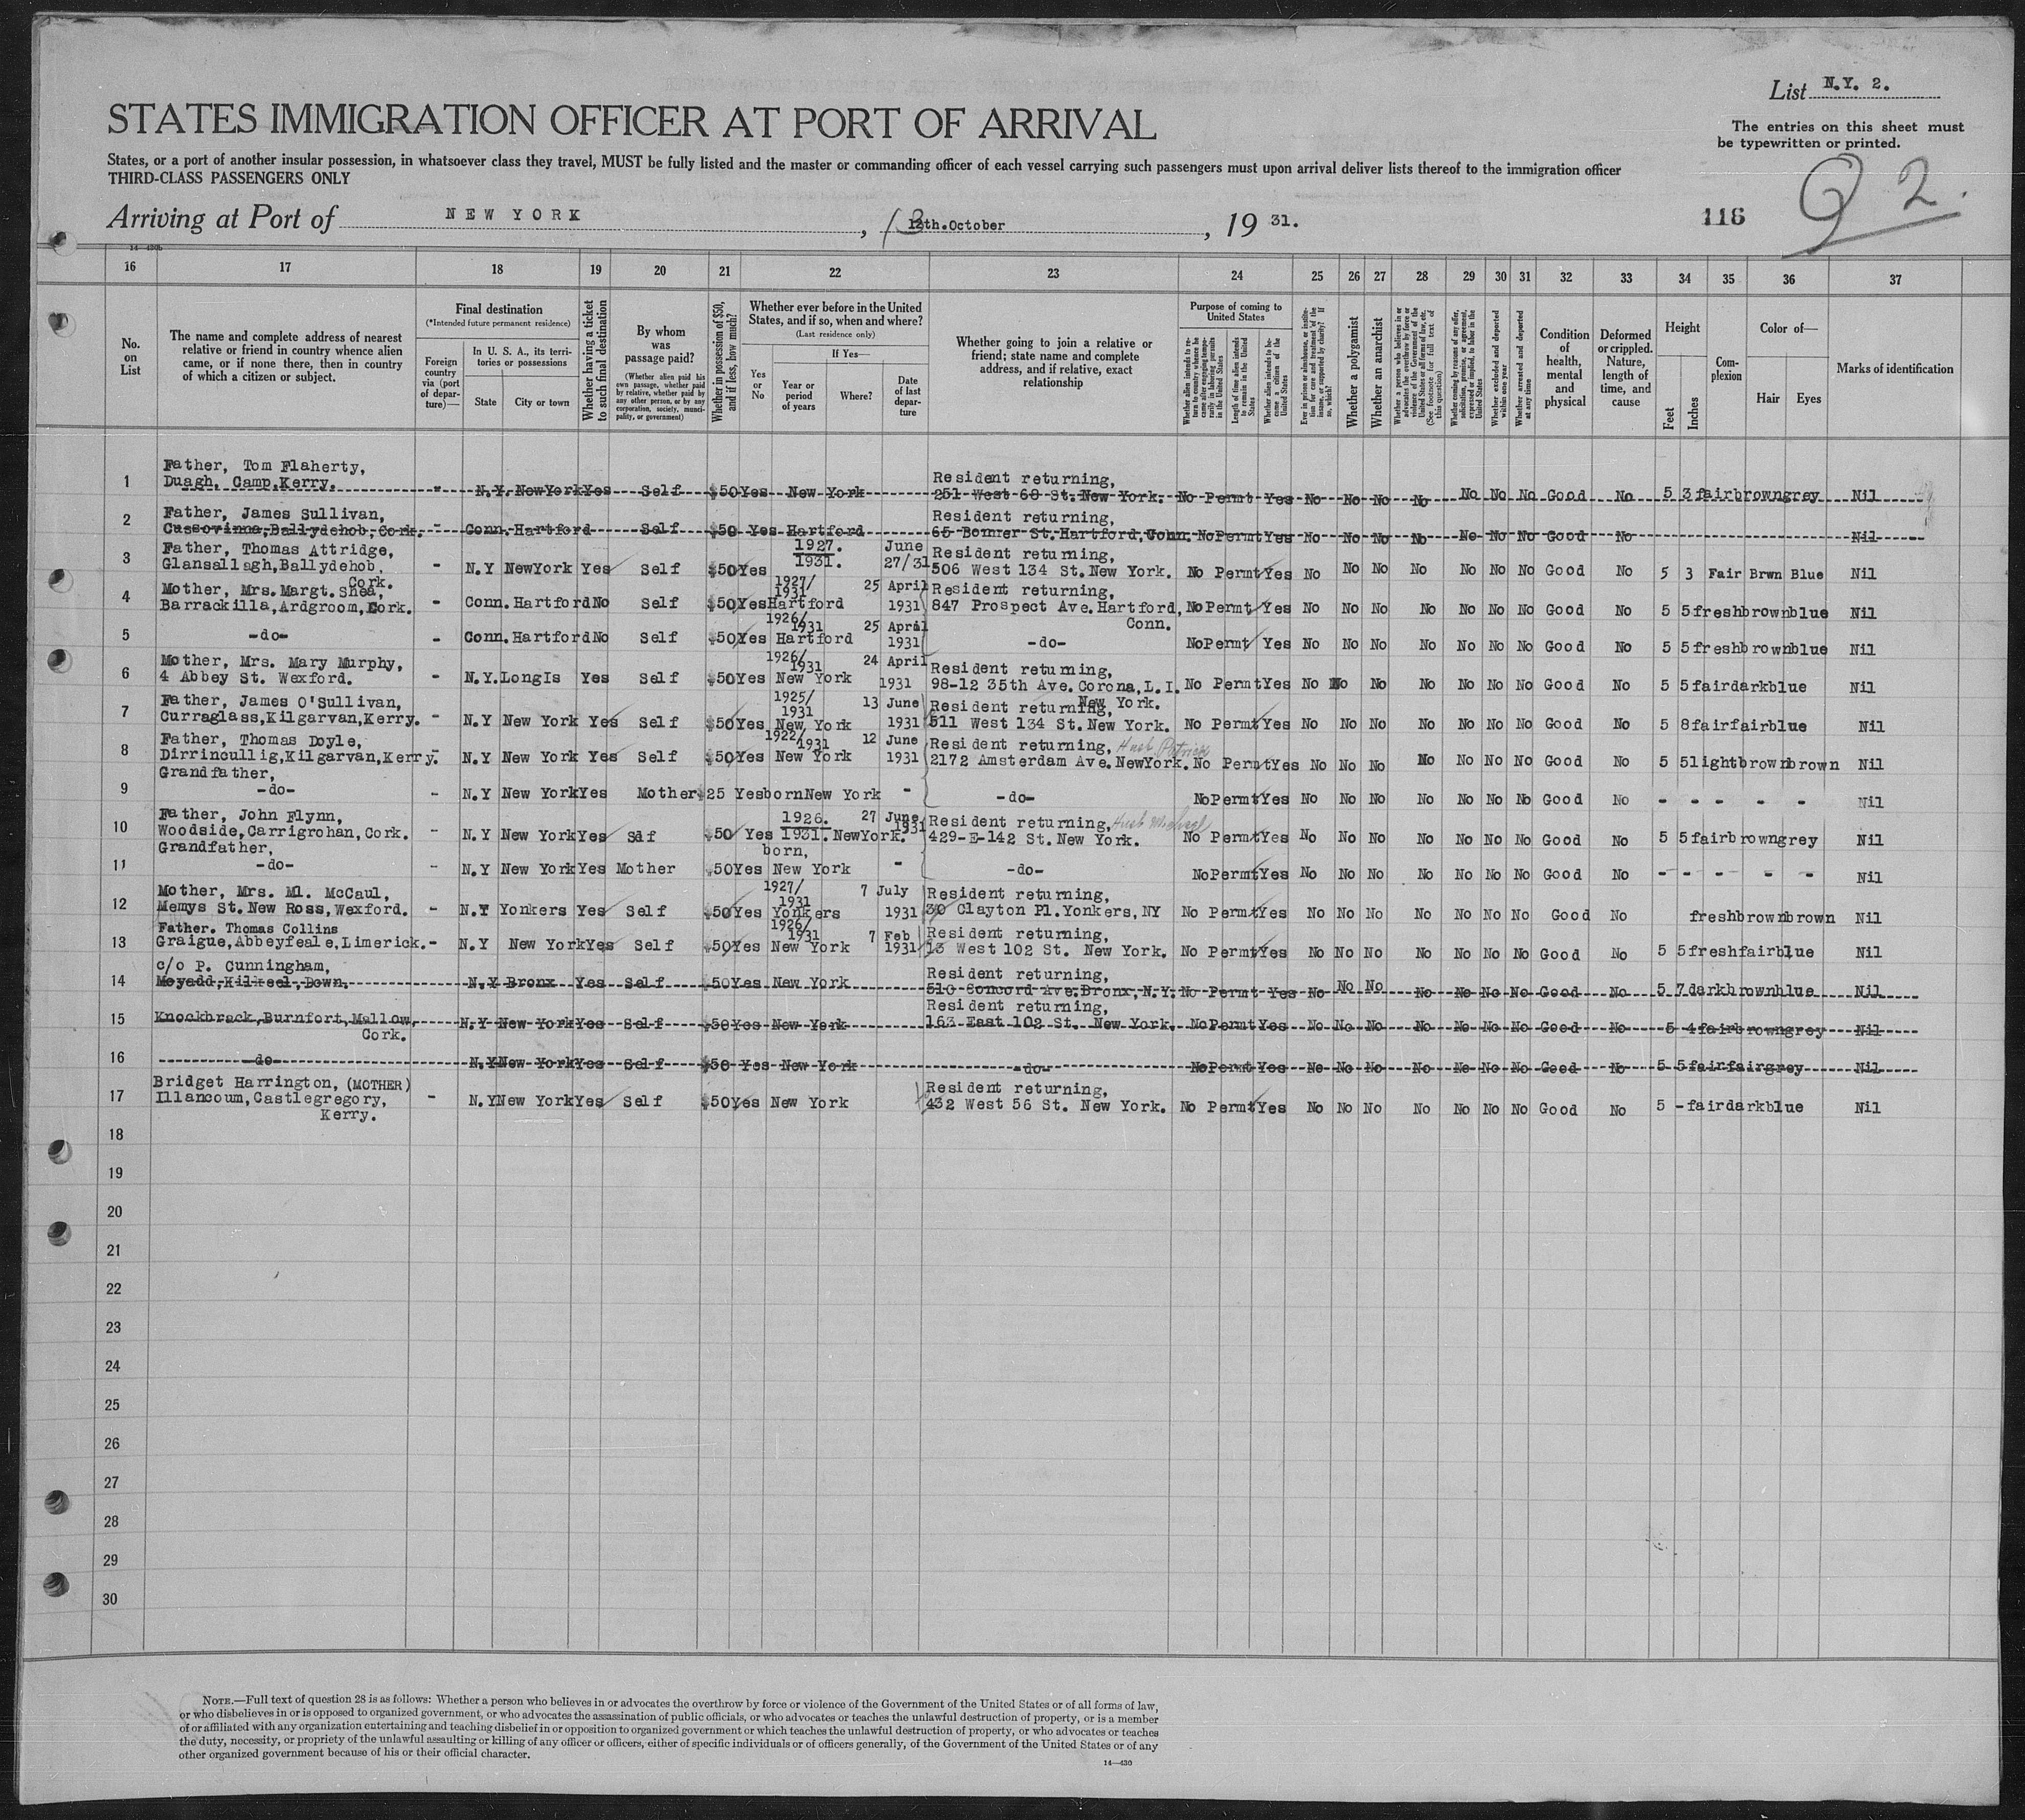 List N.Y. 2.
STATES IMMIGRATION OFFICER AT PORT OF ARRIVAL
The entries on this sheet must
be typewritten or printed.
States, or a port of another insular possession, in whatsoever class they travel, MUST be fully listed and the master or commanding officer of each vessel carrying such passengers must upon arrival deliver lists thereof to the immigration officer
THIRD-CLASS PASSENGERS ONLY
Q 2.
Arriving at Port of NEW YORK, 12th.October, 19 31.
116
16 17 18 19 20 21 22 23 24 25 26 27 28 29 30 31 32 33 34 35 36 37
No. on List
The name and complete address of nearest relative or friend in country whence alien came, or if none there, then in country of which a citizen or subject.
Final destination
(*Intended future permanent residence)
Foreign country via (port of departure)—
In U. S. A., its territories or possessions
State
City or town
Whether having a ticket to such final destination
By whom was passage paid?
(Whether alien paid his own passage, whether paid by relative, whether paid by any other person, or by any corporation, society, municipality, or government)
Whether in possession of $50, and if less, how much?
Whether ever before in the United States, and if so, when and where?
(Last residence only)
Yes or No
If Yes—
Year or period of years
Where?
Date of last departure
Whether going to join a relative or friend; state name and complete address, and if relative, exact relationship
Purpose of coming to United States
Whether alien intends to return to country whence he came after engaging temporarily in laboring pursuits in the United States
Length of time alien intends to remain in the United States
Whether alien intends to become a citizen of the United States
Ever in prison or almshouse, or institution for care and treatment of the insane, or supported by charity? If so, which?
Whether a polygamist
Whether an anarchist
Whether a person who believes in or advocates the overthrow by force or violence of the Government of the United States or all forms of law, etc. (See footnote for full text of this question)
Whether coming by reasons of any offer, solicitation, promise, or agreement, expressed or implied, to labor in the United States
Whether excluded and deported within one year
Whether arrested and deported at any time
Condition of health, mental and physical
Deformed or crippled. Nature, length of time, and cause
Height
Feet
Inches
Complexion
Color of—
Hair
Eyes
Marks of identification
1 Father, Tom Flaherty,
Duagh, Camp,Kerry. - N.Y. NewYork Yes Self $50 Yes New York Resident returning,
251 West 60 St. New York. No Permt Yes No No No No No No No Good No 5 3 fair brown grey Nil
2 Father, James Sullivan,
Cussovinna,Ballydehob,Cork. - Conn. Hartford Self $50 Yes Hartford Resident returning,
65 Bonner St.Hartford,Conn. No Permt Yes No No No No No No No Good No Nil
3 Father, Thomas Attridge,
Glansallagh,Ballydehob,
Cork. - N.Y NewYork Yes Self $50 Yes 1927. 1931. June 27/31 Resident returning,
506 West 134 St.New York. No Permt Yes No No No No No No No Good No 5 3 Fair Brwn Blue Nil
4 Mother, Mrs. Margt. Shea,
Barrackilla,Ardgroom,Cork. - Conn. Hartford No Self $50 Yes 1927/ 1931 Hartford 25 April 1931 Resident returning,
847 Prospect Ave.Hartford,
Conn. No Permt Yes No No No No No No No Good No 5 5 fresh brown blue Nil
5 -do- - Conn. Hartford No Self $50 Yes 1926/ 1931 Hartford 25 April 1931 -do- No Permt Yes No No No No No No No Good No 5 5 fresh brown blue Nil
6 Mother, Mrs. Mary Murphy,
4 Abbey St. Wexford. - N.Y. LongIs Yes Self $50 Yes 1926/ 1931 New York 24 April 1931 Resident returning,
98-12 35th Ave. Corona,L.I.
New York. No Permt Yes No No No No No No No Good No 5 5 fair dark blue Nil
7 Father, James O'Sullivan,
Curraglass,Kilgarvan,Kerry. - N.Y New York Yes Self $50 Yes 1925/ 1931 New York 13 June 1931 Resident returning,
511 West 134 St.New York. No Permt Yes No No No No No No No Good No 5 8 fair fair blue Nil
8 Father, Thomas Doyle,
Dirrincullig,Kilgarvan,Kerry. - N.Y New York Yes Self $50 Yes 1922/ 1931 New York 12 June 1931 Resident returning, Husb Patrick
2172 Amsterdam Ave.NewYork. No Permt Yes No No No No No No No Good No 5 5 light brown brown Nil
9 Grandfather,
-do- - N.Y New York Yes Mother $25 Yes born New York - -do- No Permt Yes No No No No No No No Good No - - - - - Nil
10 Father, John Flynn,
Woodside,Carrigrohan,Cork. - N.Y New York Yes Self $50 Yes 1926. 1931. NewYork. 27 June 1931 Resident returning, Husb Michael
429-E-142 St.New York. No Permt Yes No No No No No No No Good No 5 5 fair brown grey Nil
11 Grandfather,
-do- - N.Y New York Yes Mother $50 Yes born, New York - -do- No Permt Yes No No No No No No No Good No - - - - - Nil
12 Mother, Mrs. Ml. McCaul,
Memys St.New Ross,Wexford. - N.Y Yonkers Yes Self $50 Yes 1927/ 1931 Yonkers 7 July 1931 Resident returning,
30 Clayton Pl.Yonkers,NY No Permt Yes No No No No No No No Good No fresh brown brown Nil
13 Father. Thomas Collins
Graigue,Abbeyfeale,Limerick. - N.Y New York Yes Self $50 Yes 1926/ 1931 New York 7 Feb 1931 Resident returning,
13 West 102 St. New York. No Permt Yes No No No No No No No Good No 5 5 fresh fair blue Nil
14 c/o P. Cunningham,
Moyadd,Kilkeel,Down. N.Y Bronx Yes Self $50 Yes New York Resident returning,
510 Concord Ave.Bronx,N.Y. No Permt Yes No No No No No No No Good No 5 7 dark brown blue Nil
15 Knockbrack,Burnfort,Mallow,
Cork. N.Y New York Yes Self $50 Yes New York Resident returning,
163 East 102 St. New York. No Permt Yes No No No No No No No Good No 5 4 fair brown grey Nil
16 -do- N.Y New York Yes Self $50 Yes New York -do- No Permt Yes No No No No No No No Good No 5 5 fair fair grey Nil
17 Bridget Harrington, (MOTHER)
Illancoum,Castlegregory,
Kerry. - N.Y New York Yes Self $50 Yes New York Resident returning,
432 West 56 St. New York. No Permt Yes No No No No No No No Good No 5 - fair dark blue Nil
18
19
20
21
22
23
24
25
26
27
28
29
30
NOTE.—Full text of question 28 is as follows: Whether a person who believes in or advocates the overthrow by force or violence of the Government of the United States or of all forms of law,
or who disbelieves in or is opposed to organized government, or who advocates the assassination of public officials, or who advocates or teaches the unlawful destruction of property, or is a member
of or affiliated with any organization entertaining and teaching disbelief in or opposition to organized government or which teaches the unlawful destruction of property, or who advocates or teaches
the duty, necessity, or propriety of the unlawful assaulting or killing of any officer or officers, either of specific individuals or of officers generally, of the Government of the United States or of any
other organized government because of his or their official character.
14—430